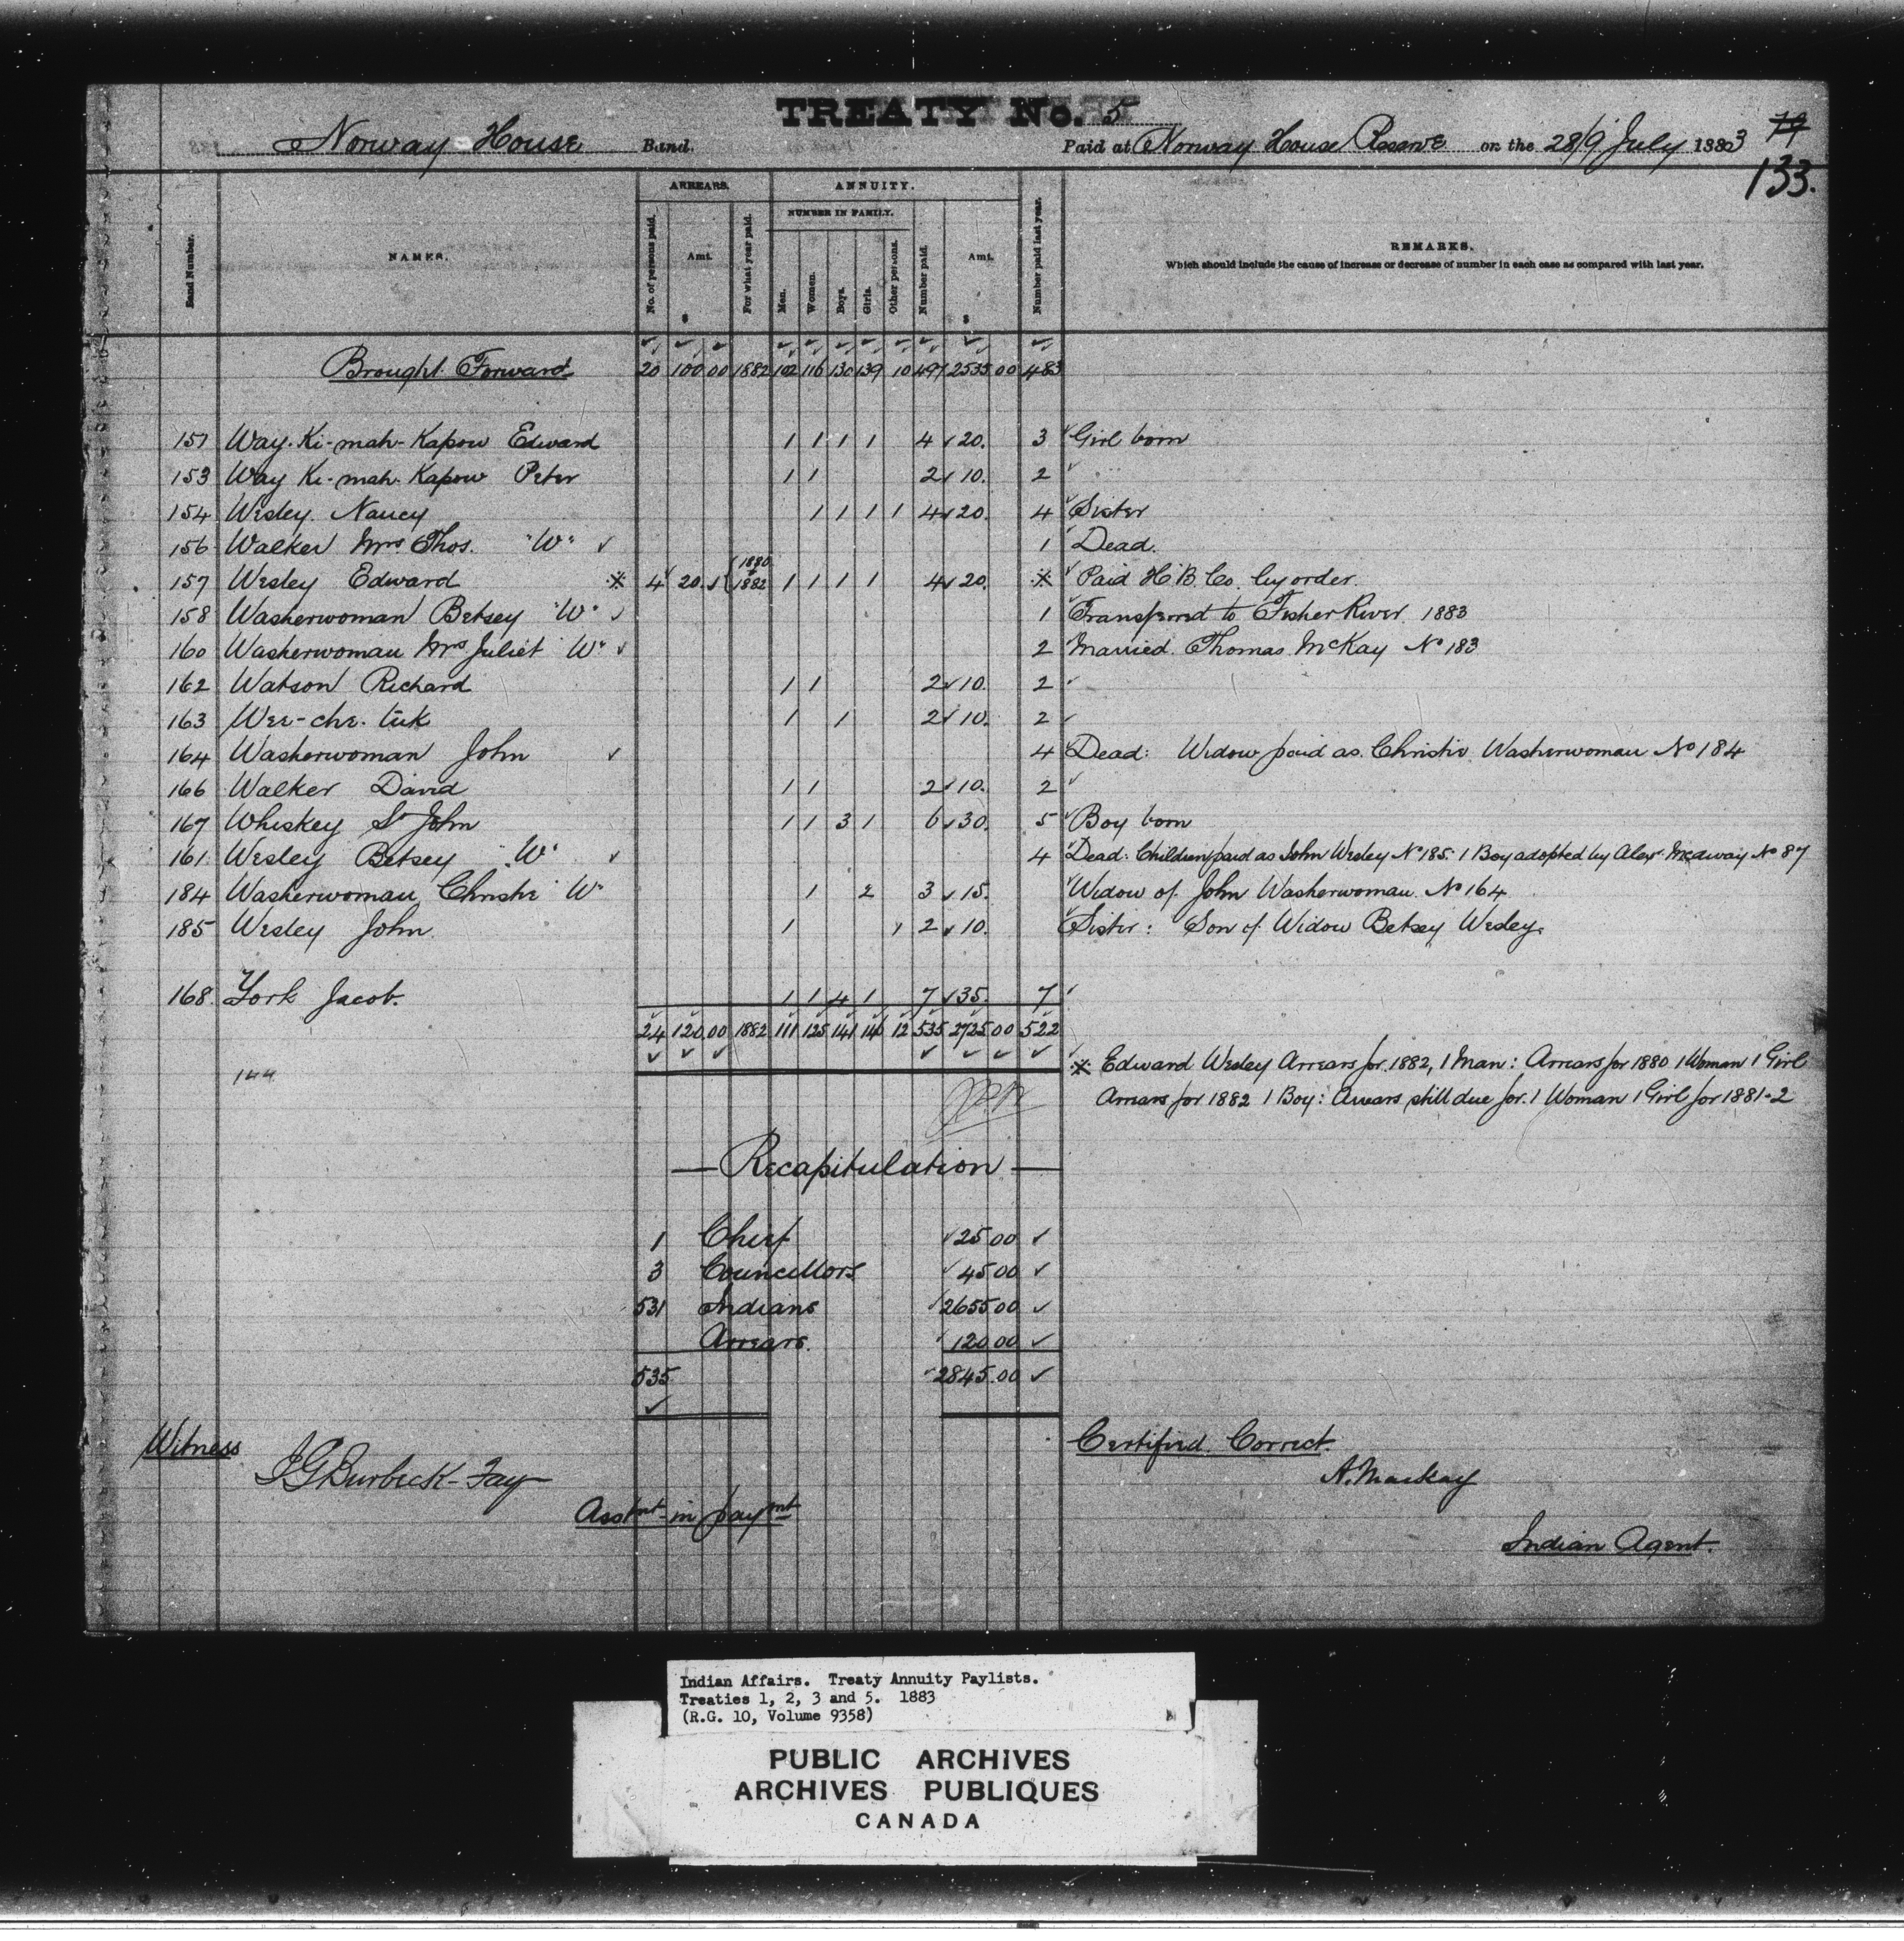 TREATY No. 5
Norway House Band. Paid at Norway House Reserve on the 28/9 July 1883 79
133.
Band Number. NAMES. ARREARS. No. of persons paid. Amt. $ For what year paid. ANNUITY. NUMBER IN FAMILY. Men. Women. Boys. Girls. Other persons. Number paid. Amt. $ Number paid last year. REMARKS.
Which should include the cause of increase or decrease of number in each case as compared with last year.
Brought Forward 20 100 00 1882 102 116 130 139 10 497 2535 00 483
151 Way-Ki-mah-Kapow Edward 1 1 1 1 4 20. 3 Girl born
153 Way Ki-mah-Kapow Peter 1 1 2 10. 2 "
154 Wesley Nancy 1 1 1 1 4 20. 4 Sister
156 Walker Mrs Thos. "W" 1 Dead.
157 Wesley Edward ※ 4 20. 1880 + 1882 1 1 1 1 4 20. ※ Paid H.B. Co. by order.
158 Washerwoman Betsey "W" 1 Transferred to Fisher River 1883
160 Washerwoman Mrs Juliet "W" 2 Married Thomas McKay No 183
162 Watson Richard 1 1 2 10. 2
163 Wee-che-tuk 1 1 2 10. 2
164 Washerwoman John 4 Dead: Widow paid as Christie Washerwoman No 184
166 Walker David 1 1 2 10. 2
167 Whiskey St John 1 1 3 1 6 30. 5 Boy born
161 Wesley Betsey "W" 4 Dead: Children paid as John Wesley No 185. 1 Boy adopted by Alex McAway No 87
184 Washerwoman Christie "W" 1 2 3 15. Widow of John Washerwoman No 164
185 Wesley John 1 1 2 10. Sister: Son of Widow Betsey Wesley
168. York Jacob. 1 1 4 1 7 35. 7
24 120.00 1882 111 125 141 146 12 535 2725 00 522
144
※ Edward Wesley Arrears for 1882, 1 Man: Arrears for 1880 1 Woman 1 Girl
Arrears for 1882 1 Boy: Arrears still due for 1 Woman 1 Girl for 1881-2
— Recapitulation —
1 Chief 25 00
3 Councillors 45 00
531 Indians 2655.00
Arrears. 120.00
535 2845.00
Witness Certified Correct.
J G Burbeck-Fay A. Mackay
Asstnt in paymt
Indian Agent.
Indian Affairs. Treaty Annuity Paylists.
Treaties 1, 2, 3 and 5. 1883
(R.G. 10, Volume 9358)
PUBLIC ARCHIVES
ARCHIVES PUBLIQUES
CANADA